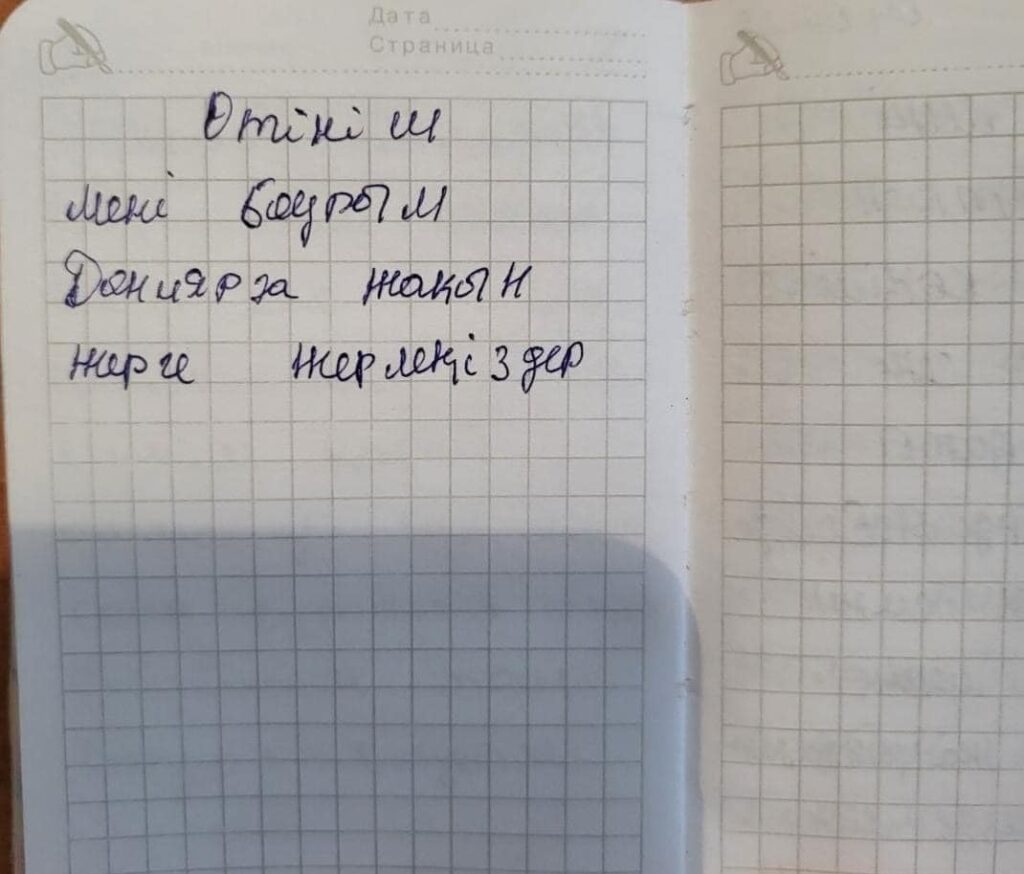 Дата
Страница
Өтініш
мені бауырым
Даниярға жақын
жерге жерлеңіздер